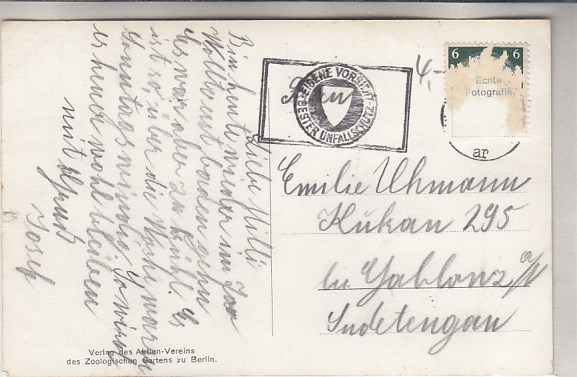 Liebe Milli
Bin heute wieder im Zoo
Wollte erst baden gehn
Es war aber zu kühl. Es
ist so, über die Woche warm
Sonntags windig. So wird
es heute wohl bleiben
mit Gruß
Josef
Verlag des Aktien-Vereins
des Zoologischen Gartens zu Berlin.
EIGENE VORSICHT
BESTER UNFALLSCHUTZ
4,-
6 6
Echte
Fotografie
ar
Emilie Uhmann
Kukan 295
bei Gablonz a/N
Sudetengau